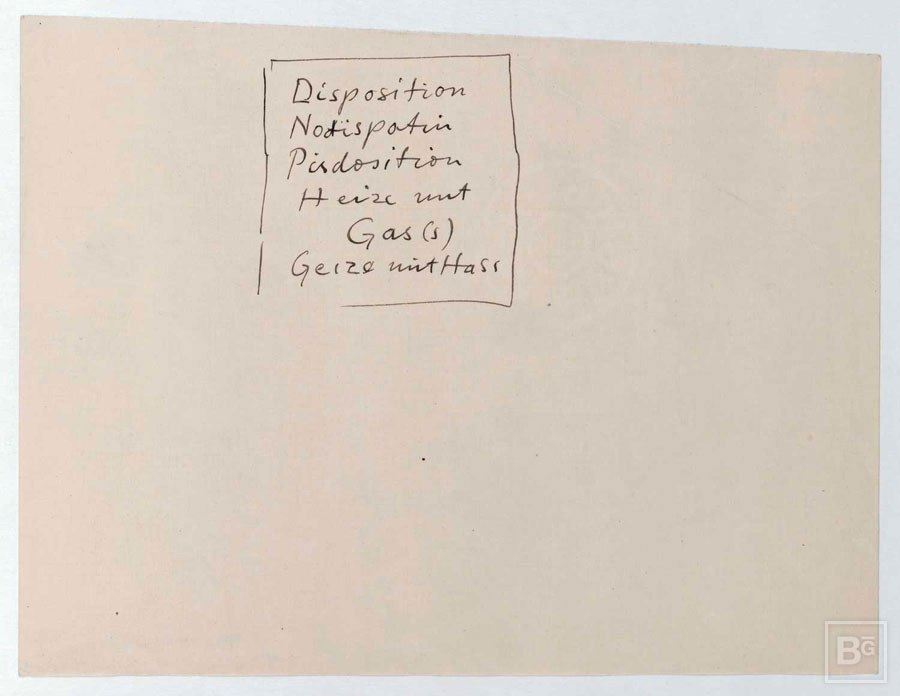 Disposition
Nodispotin
Pisdosition
Heize mit
Gas(s)
Geize mit Hass
BG